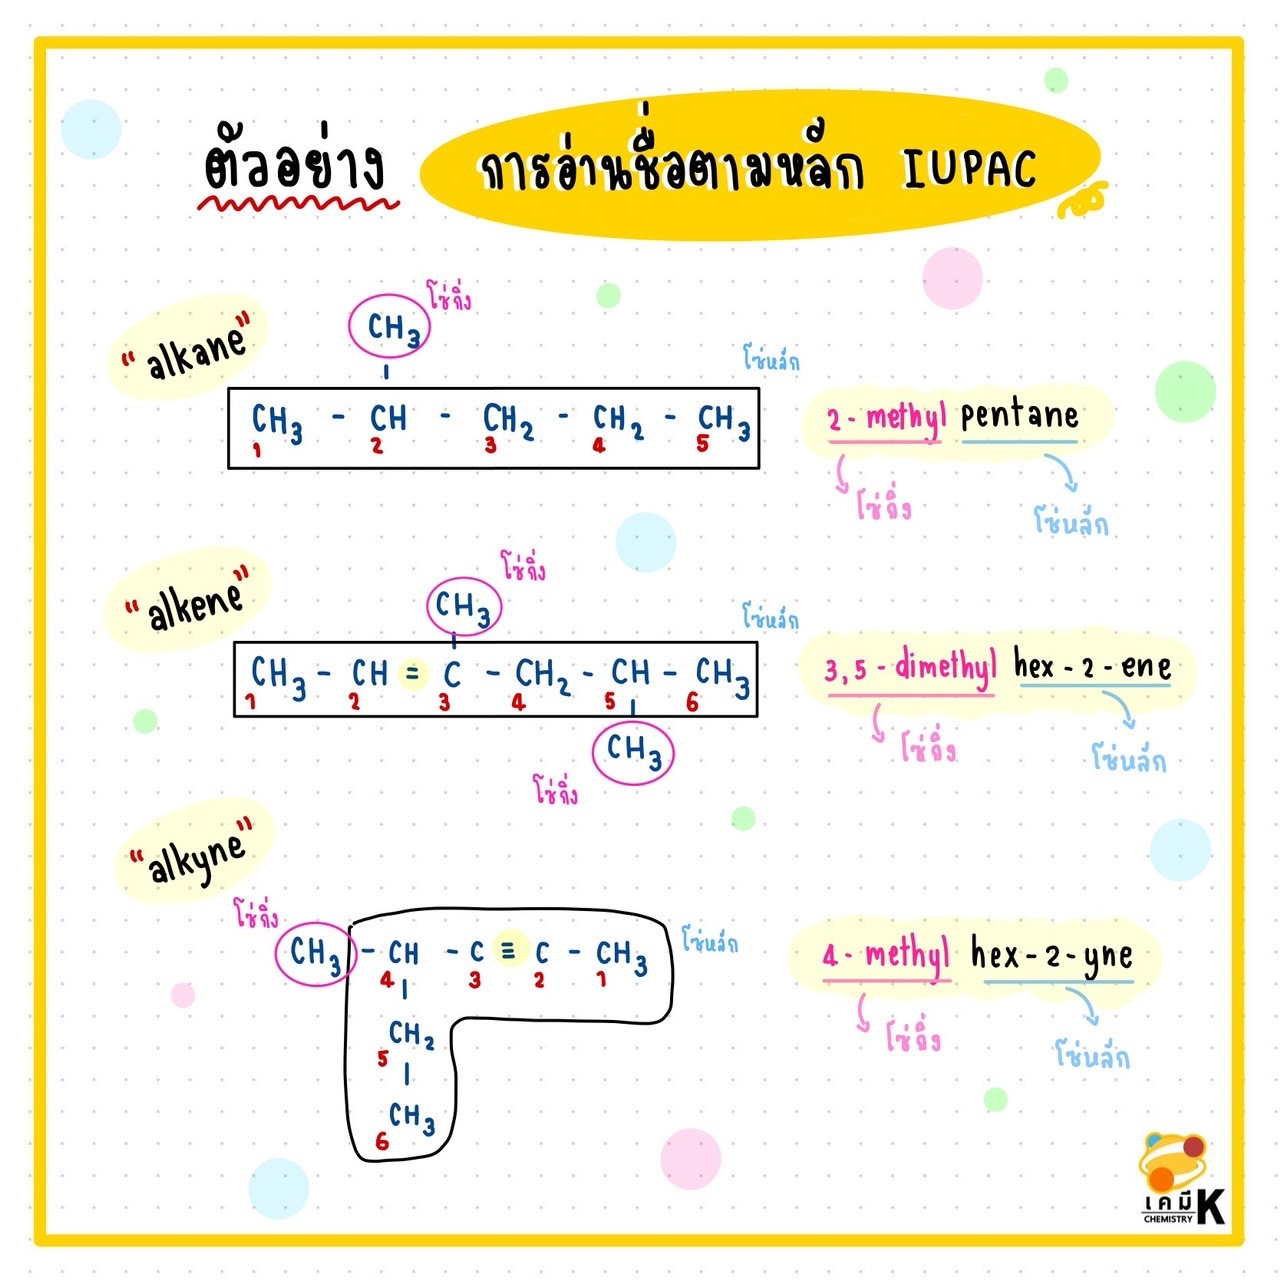 ตัวอย่าง การอ่านชื่อตามหลัก IUPAC
"alkane"
CH3 โซ่กิ่ง
โซ่หลัก
CH3 - CH - CH2 - CH2 - CH3
1 2 3 4 5
2 - methyl pentane
โซ่กิ่ง โซ่หลัก
"alkene"
โซ่กิ่ง
CH3
โซ่หลัก
CH3 - CH = C - CH2 - CH - CH3
1 2 3 4 5 6
CH3
โซ่กิ่ง
3,5 - dimethyl hex - 2 - ene
โซ่กิ่ง โซ่หลัก
"alkyne"
โซ่กิ่ง
CH3 - CH - C ≡ C - CH3 โซ่หลัก
4 3 2 1
CH2
5
CH3
6
4 - methyl hex - 2 - yne
โซ่กิ่ง โซ่หลัก
เคมี K
CHEMISTRY